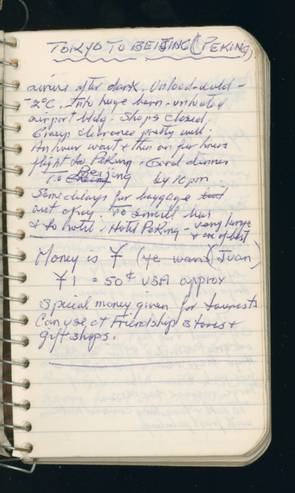 TOKYO TO BEIJING (PEKING)
arrives after dark. Unload - cold -
-2°C. Into huge barn - unheated
airport bldg. Shops closed,
Group clearance pretty well.
An hour wait & then on four hours
flight to Peking - Good dinner
To Beijing by 10 pm
Some delays for baggage
out of way. To small bus
& to hotel. Hotel Peking - very large
& one of best
Money is ¥ (ye wan) (Yuan)
¥1 = 50¢ USA approx
Special money given for tourists
Can use at Friendship stores +
gift shops.